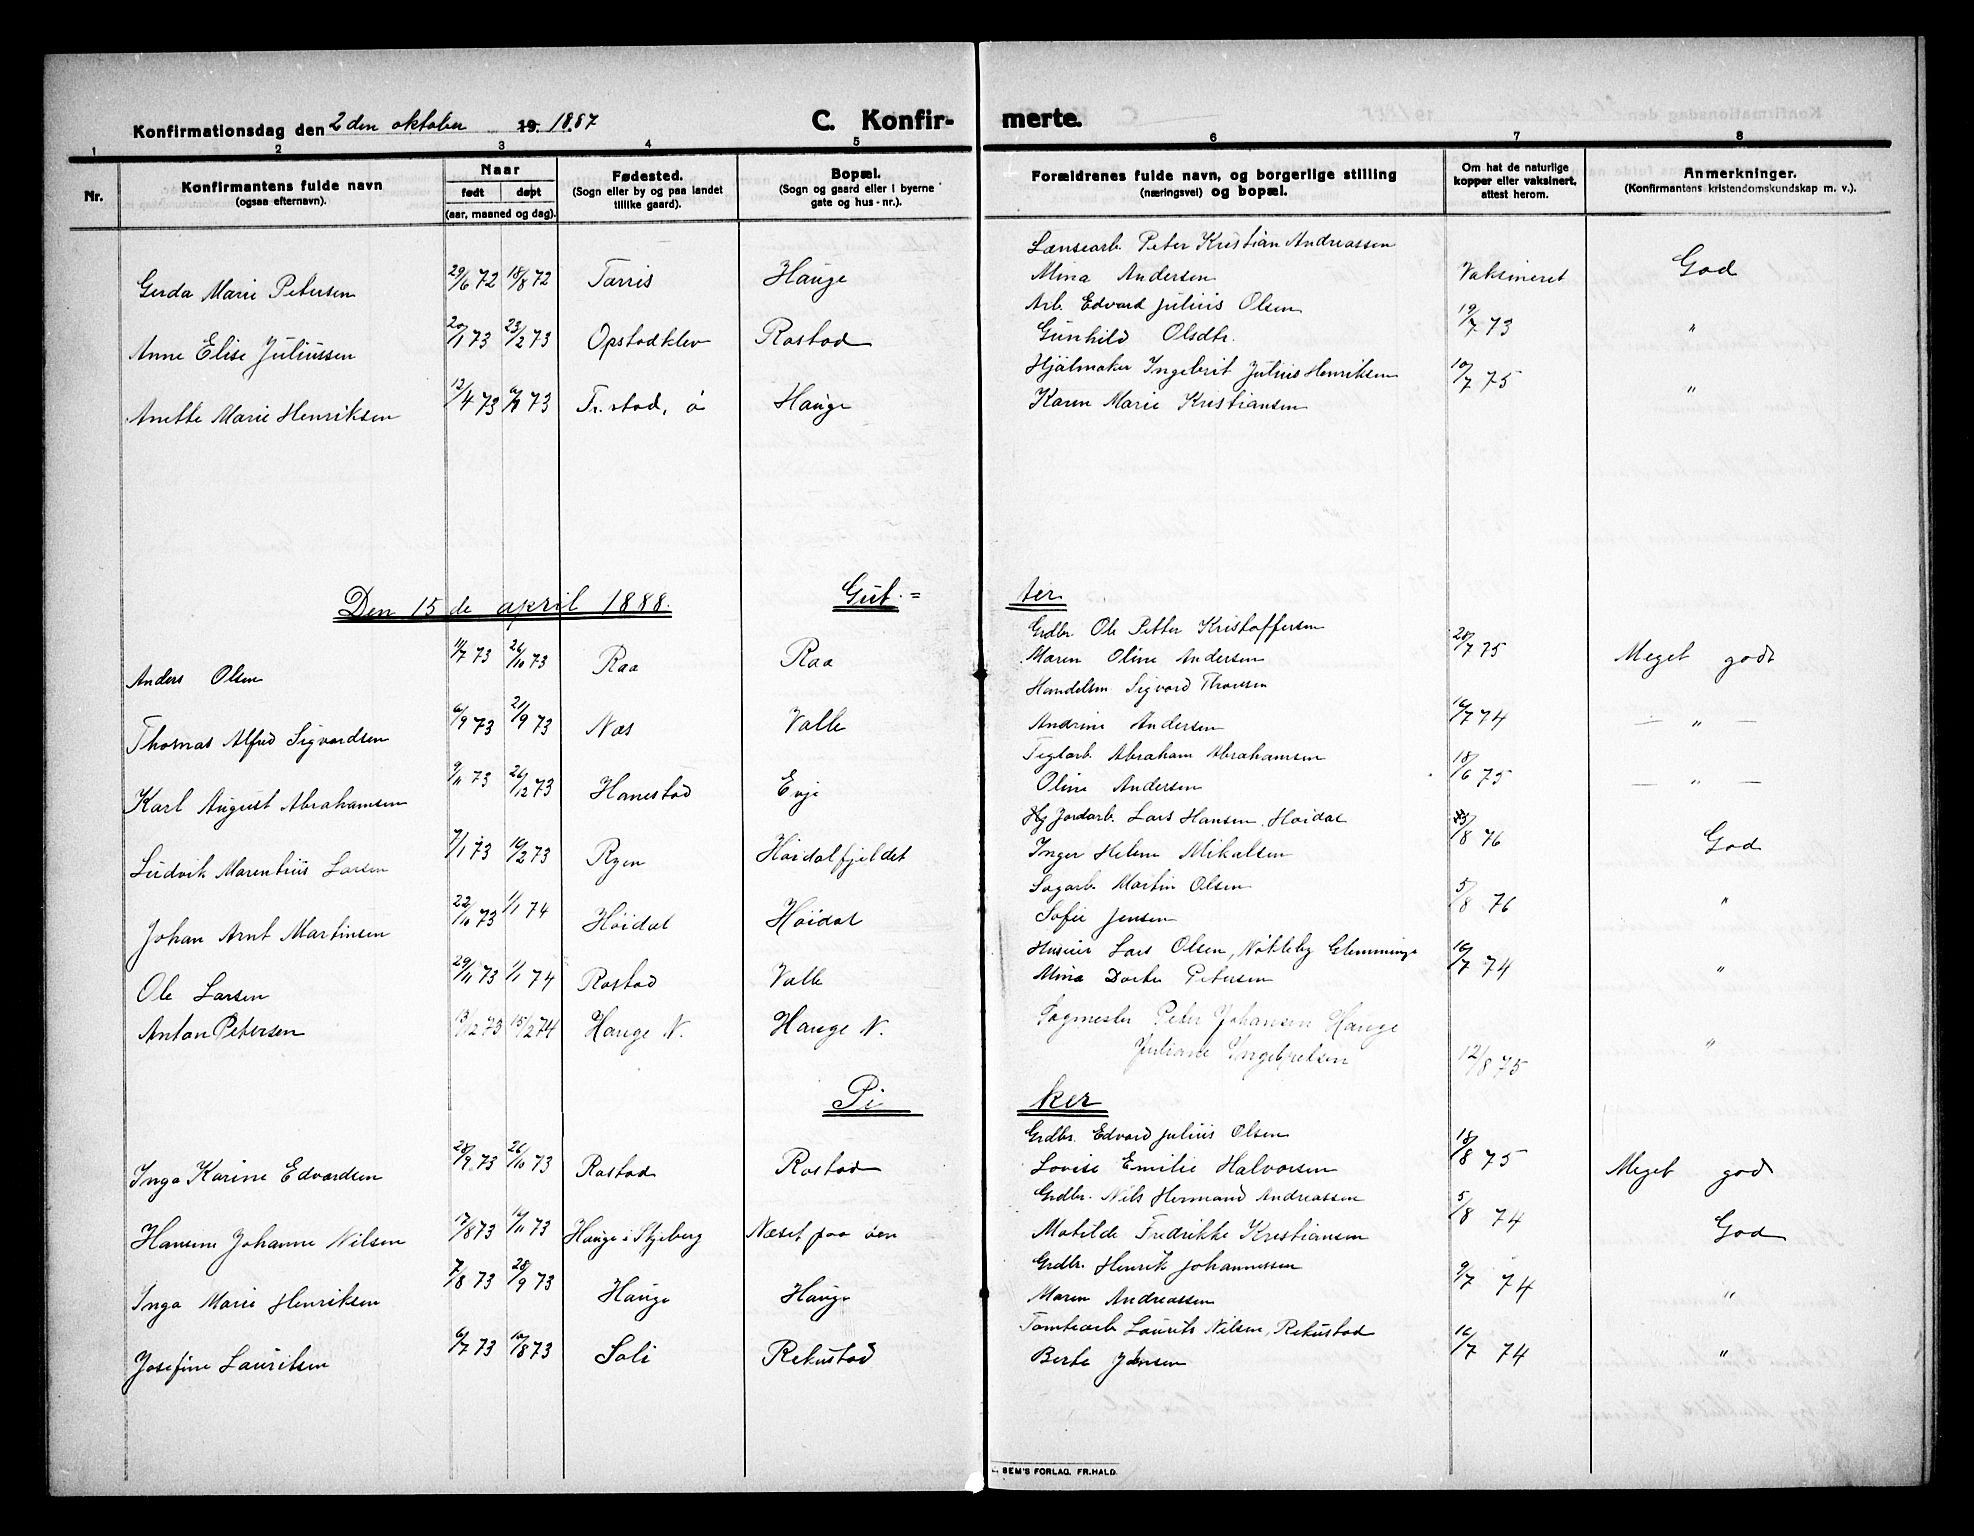 Konfirmationsdag den 2 den oktober 19. 1887 C. Konfir- merte.
1 2 3 4 5 6 7 8
Nr. Konfirmantens fulde navn (ogsaa efternavn). Naar født døpt (aar, maaned og dag). Fødested. (Sogn eller by og paa landet tillike gaard). Bopæl. (Sogn og gaard eller i byerne gate og hus-nr.). Forældrenes fulde navn, og borgerlige stilling (næringsvei) og bopæl. Om hat de naturlige kopper eller vaksinert, attest herom. Anmerkninger. (Konfirmantens kristendomskundskap m. v.).
Lænsearb. Peter Kristian Andreassen
Gerda Marie Petersen 29/6 72 18/8 72 Tarris Hauge Mina Andersen Vaksineret God
Arb. Edvard Julius Olsen
Anne Elise Juliussen 20/1 73 23/2 73 Opstadklev Rostad Gunhild Olsdtr. 19/7 73 "
Hjulmaker Ingebrit Julius Henriksen
Anette Marie Henriksen 13/4 73 73 Fr.stad, ø Hauge Karen Marie Kristiansen 10/7 75 "
Den 15 de april 1888. Gut- ter
Grdbr. Ole Petter Kristoffersen
Anders Olsen 11/7 73 26/10 73 Raa Raa Maren Oline Andersen 28/7 75 Meget godt
Handelsm Sigvard Thoresen
Thomas Alfred Sigvardsen 6/9 73 21/9 73 Næs Valle Andrine Andersen 16/7 74 — " —
Teglarb. Abraham Abrahamsen
Karl August Abrahamsen 9/11 73 26/12 73 Hanestad Evje Oline Andersen 18/6 75 — " —
Hg Jordarb. Lars Hansen, Høidal
Ludvik Marentius Larsen 7/1 73 16/2 73 Ryen Høidalfjeldet Inger Helene Mikalsen /8 76 God
Sagarb. Martin Olsen
Johan Arnt Martinsen 22/10 73 1/1 74 Höidal Höidal Sofie Jensen 5/8 76 "
Huseier Lars Olsen, Nøkleby Glemminge
Ole Larsen 29/11 73 1/1 74 Rostad Valle Mina Dorte Petersen 16/7 74 "
Anton Petersen 13/12 73 15/2 74 Hauge N. Hauge N. Sagmester Peter Johansen Hauge "
Juliane Ingebretsen 12/8 75
Pi ker
Grdbr. Edvard Julius Olsen
Inga Karine Edvardsen 28/9 73 26/10 73 Rostad Rostad Lovise Emilie Halvorsen 18/8 75 Meget god
Grdbr. Nils Hermand Andreassen
Hansine Johanne Nilsen 17/8 73 16/11 73 Hauge i Skjeberg Næset paa øen Matilde Fredrikke Kristiansen 5/8 74 God
Grdbr. Henrik Johannessen
Inga Marie Henriksen 7/8 73 28/9 73 Hauge Hauge Maren Andreassen 9/7 74 "
Tomtearb Laurits Nilsen, Rekustad
Josefine Lauritsen 6/7 73 10/8 73 Soli Rekustad Berte Jensen 16/7 74 "
SEM'S FORLAG, FR.HALD.